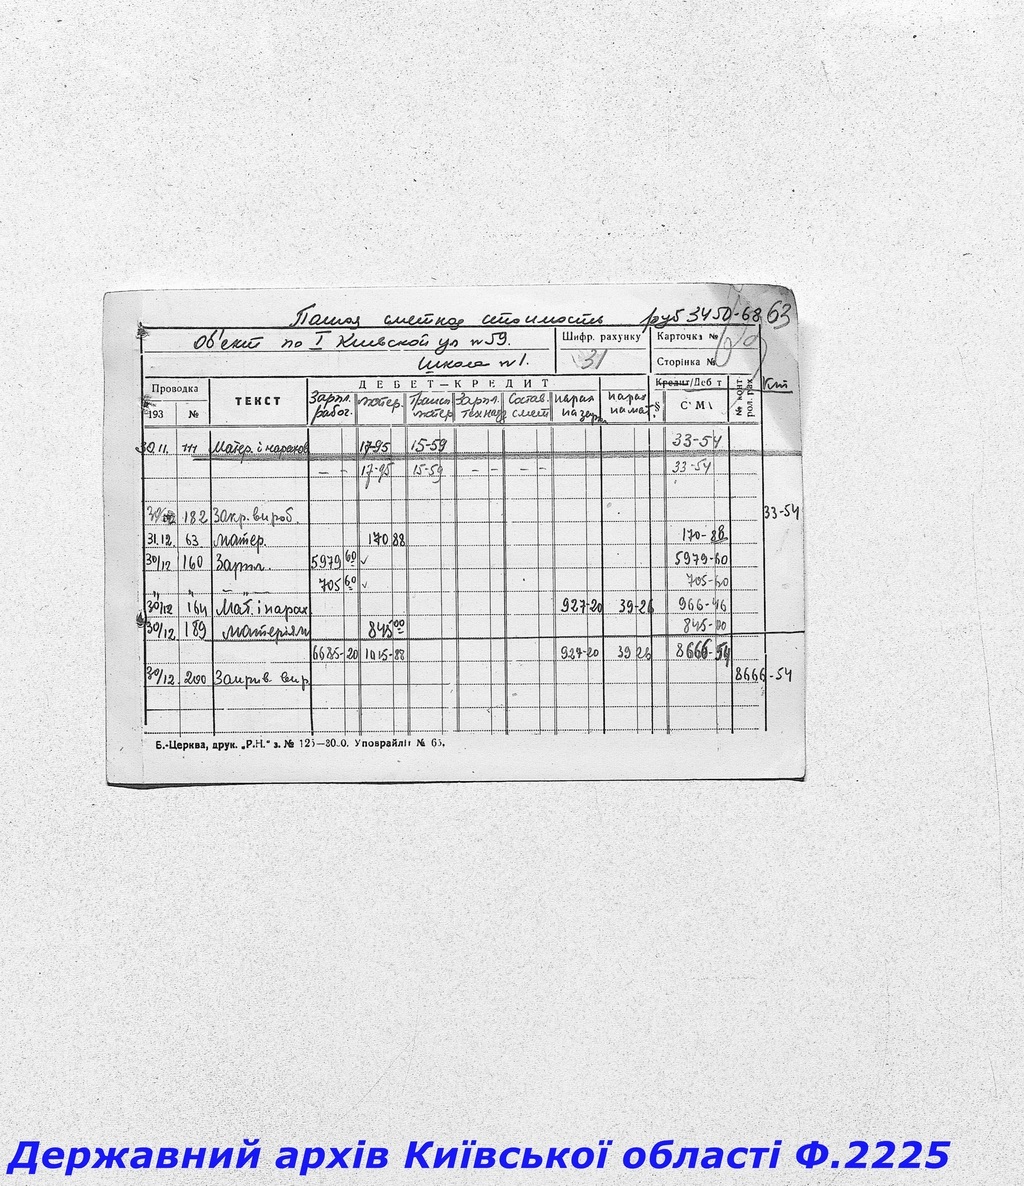 сметная стоимость руб 3450-68 63
Об'ект по I Киевской ул № 59. Шифр. рахунку Карточка №
Школа № 1. 31 Сторінка №
Проводка ТЕКСТ ДЕБЕТ—КРЕДИТ Кредит/Деб т № конт- рол. рах Кт
193 № Зарпл. работ. матер. Трансп матер Зарпл. Состав. смет нарах на зарп нарах на мат. §
30.11. Матер. і нарахов 17-95 15-59 33-54
— - 17-95 15-59 - - - - 33-54
182 Закр. вироб. 33-54
31.12. 63 матер. 170 88 170-88
30/12 160 Зарпл. 5979 60 5979-60
" " — „ — 705 60 705-60
30/12 164 Мат. і нарах 927-20 39-26 966-46
30/12 189 матеріял 845 00 845-00
6685-20 1015-88 927-20 39 26 8666-54
30/12 200 Закрив вир 8666-54
Б.-Церква, друк. „Р.Н." з. № 125—80.0. Уповрайліт № 65.
Державний архів Київської області Ф.2225